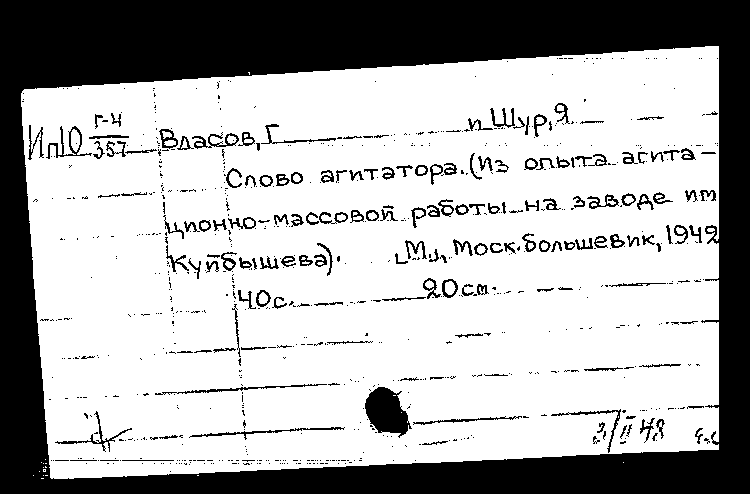 Ип10 Г-4/357 Власов, Г и Шур, Я
Слово агитатора. (Из опыта агита-
ционно-массовой работы на заводе им
Куйбышева). М., Моск. большевик, 1942
40с. 20см.
3/II 48